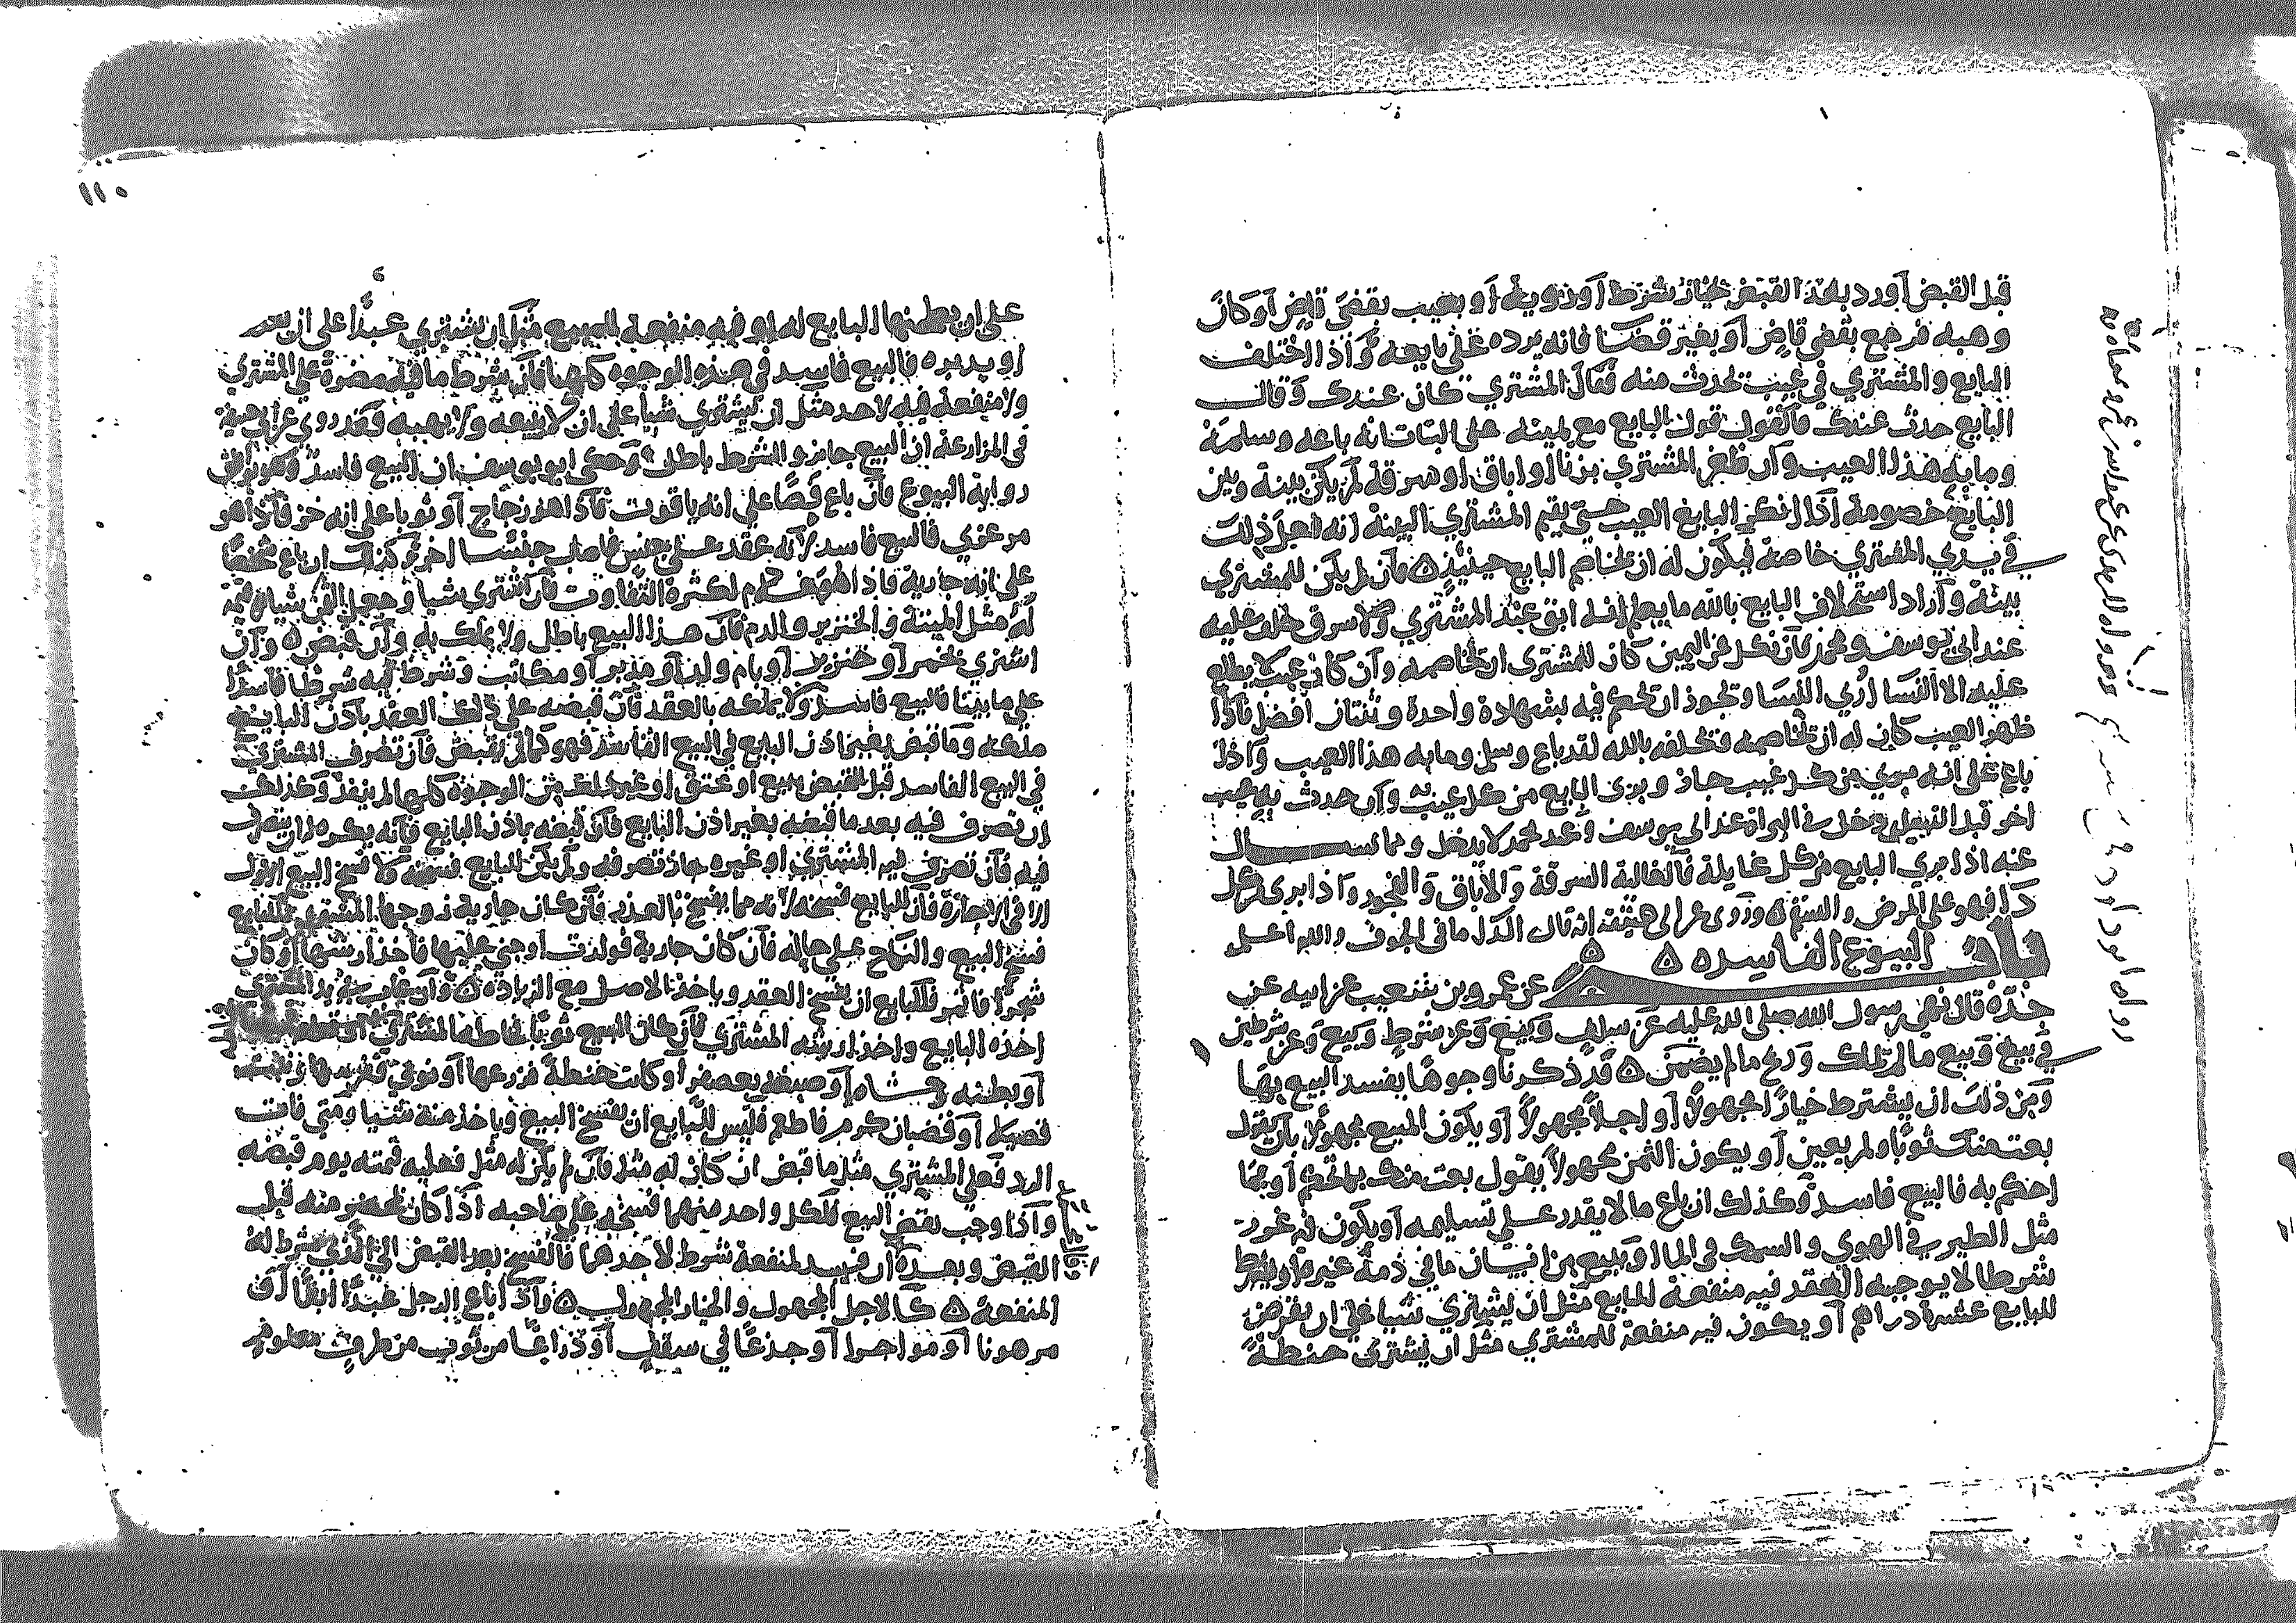 قبل القبض أو رد بعد القبض بخيار شرط أو رؤية أو بعيب بقضى قاض أو كان
وهبه فرجع بقضى قاض أو بغير قضا فانه يرده على بايعه وإذا اختلف
البايع والمشتري في عيب يحدث مثله فقال المشتري كان عندك وقال
البايع حدث عندك فالقول قول البايع مع يمينه على البتات انه باعه وسلمه
وما به هذا العيب وان طعن المشتري بزنا أو اباق أو سرقة لم يكن بينه وبين
البايع خصومة اذا انكر البايع العيب حتى يقيم المشتري البينة انه فعل ذلك
في يدي المشتري خاصة فيكون له ان يخاصم البايع حينئذ ه فان لم يكن للمشتري
بينة وأراد استحلاف البايع بالله ما يعلم انه ابق عند المشتري ولا سرق حلف عليه
عند ابي يوسف ومحمد فان نكل عن اليمين كان للمشتري ان يخاصمه وان كان عيب لا يطلع
عليه الا النسا أري النسا ويجوز ان يحكم فيه بشهادة واحدة وثنتان أفضل فاذا
ظهر العيب كان له ان يخاصمه فيحلفه بالله لقد باع وسلم وما به هذا العيب واذا
باع على انه بري من كل عيب جاز وبرى البايع من كل عيب وان حدث به عيب
اخر قبل التسليم دخل في البراة عند ابي يوسف وعند محمد لا يدخل ومما يسال
عنه اذا بري البايع من كل غايلة فالغالة السرقة والاباق والفجور واذا ابرى من كل
دا فهو على المرض والسقم ه وروى عن ابي حنيفة انه قال الدا ما في الجوف والله اعلم
باب البيوع الفاسده ه ه
عن عمرو بن شعيب عن ابيه عن
جده قال نهى رسول الله صلى الله عليه عن سلف وبيع وعن شرط وبيع وعن شرطين
في بيع وبيع ما لم تملك وربح ما لم يضمن ه قد ذكرنا وجوها يفسد البيع بها
ومن ذلك ان يشترط خيارا مجهولا أو اجلا مجهولا أو يكون المبيع مجهولا بان يقول
بعت منك ثوبا ولم يعين أو يكون الثمن مجهولا يقول بعت منك بما تحكم أو بما
احكم به فالبيع فاسد وكذلك ان باع ما لا يقدر على تسليمه أو يكون فيه غرر
مثل الطير في الهوي والسمك في الما أو يبيع من انسان ما في ذمة غيره أو يشترط
شرطا لا يوجبه العقد فيه منفعة للبايع مثل ان يشتري شيا على ان يقرض
للبايع عشرة دراهم أو يكون فيه منفعة للمشتري مثل ان يشتري حنطة
١١٠
على ان يطحنها البايع له أو فيه منفعة للمبيع مثل ان يشتري عبدا على ان
أو يدبره فالبيع فاسد في هذه الوجوه كلها فان شرط ما فيه مضرة على المشتري
ولا منفعة فيه لاحد مثل ان يشتري شيا على ان لا يبيعه ولا يهبه فقد روي عن ابي حنيفة
في المزارعة ان البيع جايز والشرط باطل وحكى ابو يوسف ان البيع فاسد وهو
رواية البيوع فان باع فصا على انه ياقوت فاذا هو زجاج أو ثوبا على انه خز فاذا هو
مرعزي فالبيع فاسد لانه عقد على جنس جنسا اخر وكذلك ان باع شخصا
على انه جارية فاذا هو غلام لكثرة التفاوت فان اشترى شيا وجعل الثمن شيا لا قيمة
له مثل الميتة والخنزير والدم فان هذا البيع باطل ولا يملك به وان قبض ه وان
اشترى بخمر أو خنزير أو بام ولد أو مدبر أو مكاتب وشرط فيه شرطا فاسدا
على ما بينا فالبيع فاسد ولا يملكه بالعقد فان قبضه على ذلك العقد باذن البايع
ملكه وما قبض بغير اذن البايع في البيع الفاسد فهو كما لم يقبض فان تصرف المشتري
في البيع الفاسد قبل القبض ببيع أو عتق أو غير ذلك من الوجوه كلها لم ينفذ وكذلك
ان تصرف فيه بعد ما قبضه بغير اذن البايع فان قبضه باذن البايع فانه يكره ان يتصرف
فيه فان تصرف فيه المشتري أو غيره جاز تصرفه ولم يكن للبايع فسخه كا البيع الاول
الا في الاجارة فان للبايع فسخه لانه مما يفسخ بالعذر فان كان جارية زوجها المشتري فللبايع
فسخ البيع والنكاح على حاله فان كان جارية فولدت أو جني عليها فاخذ ارشها أو كان
شجرا فاثمر فللبايع ان يفسخ العقد وياخذ الاصل مع الزياده ه وان عاب في يد المشتري
اخذه البايع واخذ ارشه المشتري فان كان المبيع ثوبا فخاطه المشتري أو قطعه
أو بطنه وحشاه أو صبغه بعصفر أو كانت حنطة فزرعها أو نوى فغرسها فنبتت
فصيلا أو قضبان كرم فاطعم فليس للبايع ان يفسخ البيع وياخذ منه شيا ومتى فات
الرد فعلى المشتري مثل ما قبض ان كان له مثل فان لم يكن له مثل فعليه قيمته يوم قبضه
واذا وجب نقض البيع فلكل واحد منهما فسخه على صاحبه اذا كان بمحضر منه قبل
القبض وبعده ان فسد لمنفعة شرط لاحدهما فالفسخ بعد القبض الى الذي شرط له
المنفعة ه كالاجل المجهول والخيار المجهول ه واذا باع الرجل عبدا ابقا أو
مرهونا أو مواجرا أو جذعا في سقف أو ذراعا من ثوب من طرف معلوم